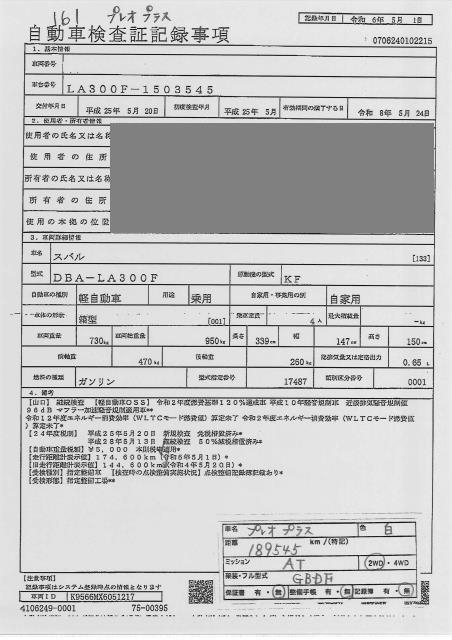 161 プレオプラス
記録年月日 令和 6年 5月 1日
自動車検査証記録事項
0706240102215
1. 基本情報
車両番号
車台番号 LA300F-1503545
交付年月日 平成 25年 5月 20日 初度検査年月 平成 25年 5月 有効期間の満了する日 令和 8年 5月 24日
2. 使用者・所有者情報
使用者の氏名又は名称
使用者の住所
所有者の氏名又は名称
所有者の住所
使用の本拠の位置
3. 車両詳細情報
車名 スバル [133]
型式 DBA-LA300F 原動機の型式 KF
自動車の種別 軽自動車 用途 乗用 自家用・事業用の別 自家用
車体の形状 箱型 [001] 乗車定員 4人 最大積載量 -kg
車両重量 730kg 車両総重量 950kg 長さ 339cm 幅 147cm 高さ 150cm
前軸重 470kg 後軸重 260kg 総排気量又は定格出力 0.65 L
燃料の種類 ガソリン 型式指定番号 17487 類別区分番号 0001
4. 備考
[山口] 継続検査 【軽自動車OSS】 令和2年度燃費基準120%達成車 平成10年騒音規制車 近接排気騒音規制値
96dB マフラー加速騒音規制適用車**
令和12年度エネルギー消費効率(WLTCモード燃費値)算定未了 令和2年度エネルギー消費効率(WLTCモード燃費値
)算定未了*
[24年度税制] 平成25年5月20日 新規検査 免税措置済み*
平成28年5月13日 継続検査 50%減税措置済み*
[自動車重量税額] ¥5,000 本則税率適用*
[走行距離計表示値] 174,600km(令和6年5月1日)*
[旧走行距離計表示値] 144,600km(令和4年5月20日)*
[受検種別] 指定整備車 [検査時の点検整備実施状況] 点検整備記録簿記載あり*
[受検形態] 指定整備工場**
車名 プレオ プラス 色 白
距離 189545 km/(特記)
ミッション AT 2WD・4WD
架装・フル型式 GBDF
保証書 有・無 整備手帳 有・無 記録簿 有・無
[注意事項]
記録事項はシステム登録時点の情報となります
車両ID K9566MX6051217
4106249-0001 75-00395